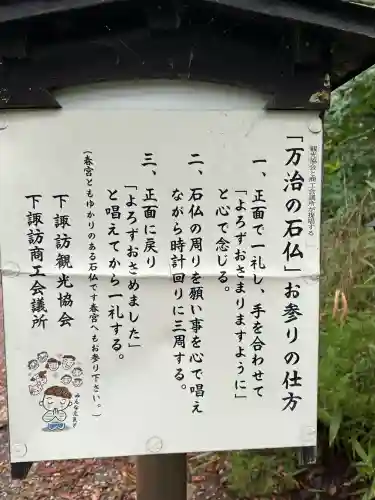 観光協会と商工会議所が提唱する
「万治の石仏」お参りの仕方
一、正面で一礼し、手を合わせて
「よろずおさまりますように」
と心で念じる。
二、石仏の周りを願い事を心で唱え
ながら時計回りに三周する。
三、正面に戻り
「よろずおさめました」
と唱えてから一礼する。
(春宮ともゆかりのある石仏です春宮へもお参り下さい。)
下諏訪観光協会
下諏訪商工会議所
みんな元気